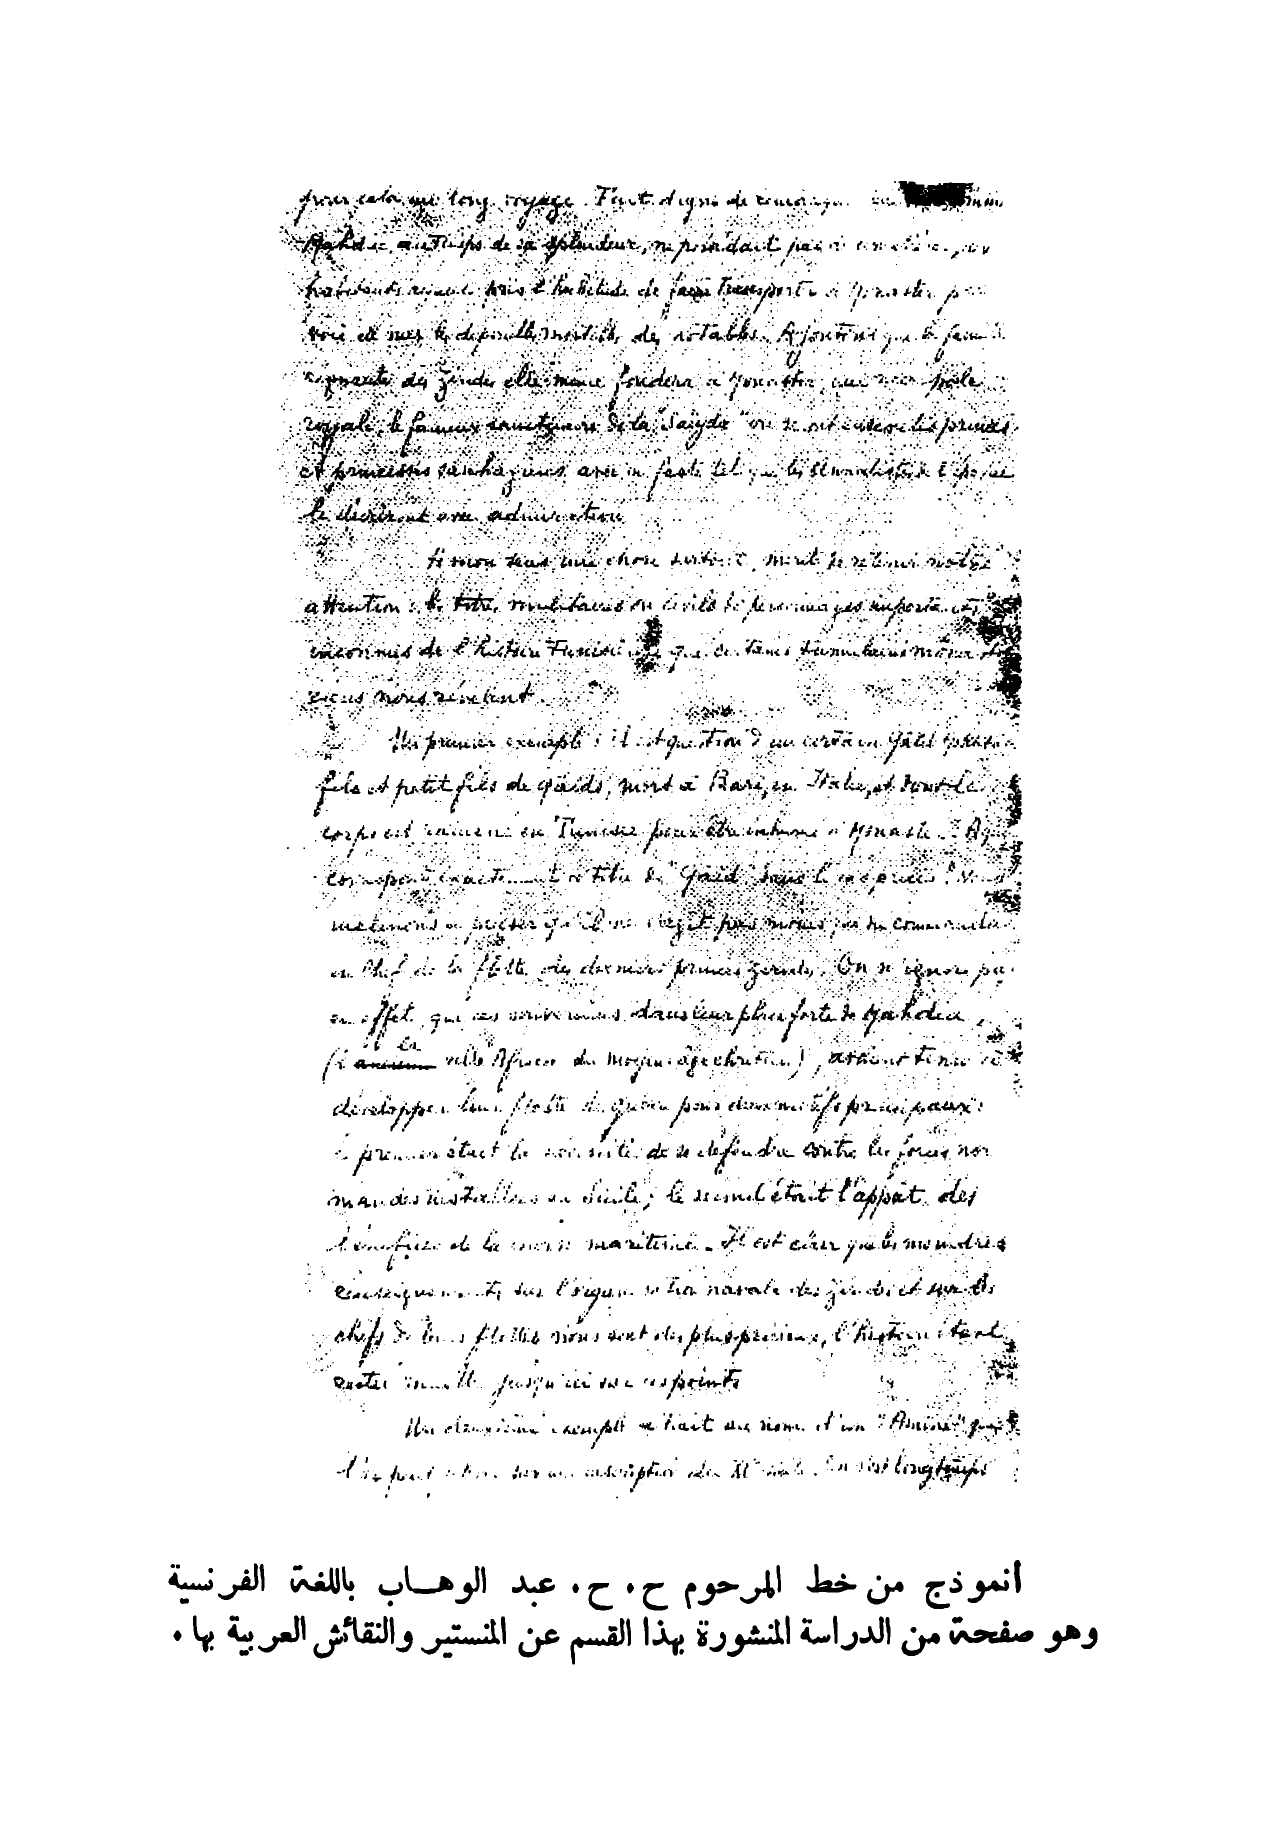 pour cela un long voyage. Fait digne de
Mahdia, au temps de sa splendeur, ne possédait pas
habitants avaient pris l'habitude de faire transporter à Monastir
voie de mer les dépouilles mortelles des notables. Ajoutons que la famille
régnante des Zirides elle-même fondera à Monastir,
royale, le fameux sanctuaire de la "Saïyda" où seront ensevelis princes
et princesses sanhagiens avec un faste tel que les annalistes de l'époque
le décriront avec admiration
A mon sens une chose surtout, mérite de retenir notre
attention : les titres militaires ou civils de personnages importants
inconnus de l'histoire Tunisienne que certains
nous révèlent.
Un premier exemple : il est question d'un certain Qâïd
fils et petit fils de Qâïds, mort à Bari, en Italie, et dont le
corps est ramené en Tunisie pour être inhumé à Monastir. A quoi
correspond exactement ce titre de "Qâïd" dans le cas précis ? Nous
inclinons à penser qu'il ne s'agit pas moins que du commandant
en Chef de la flotte des derniers princes zirides. On n'ignore pas
en effet, que ces souverains dans leur place forte de Mahdia,
(la ville Africa du moyen-âge chrétien), avaient tenu à
développer leur flotte de guerre pour deux motifs principaux :
le premier était la nécessité de se défendre contre les forces nor
mandes installées en Sicile ; le second était l'appât des
bénéfices de la course maritime. Il est clair que les moindres
renseignements sur l'organisation navale des zirides et sur les
chefs de leurs flottes nous sont des plus précieux, l'histoire étant
restée muette jusqu'ici sur ces points
Un deuxième exemple a trait au nom d'un "Amine" que
l'on peut sur une inscription du XIe siècle. longtemps
أنموذج من خط المرحوم ح. ح. عبد الوهـاب باللغة الفرنسية
وهو صفحة من الدراسة المنشورة بهذا القسم عن المنستير والنقائش العربية بها.